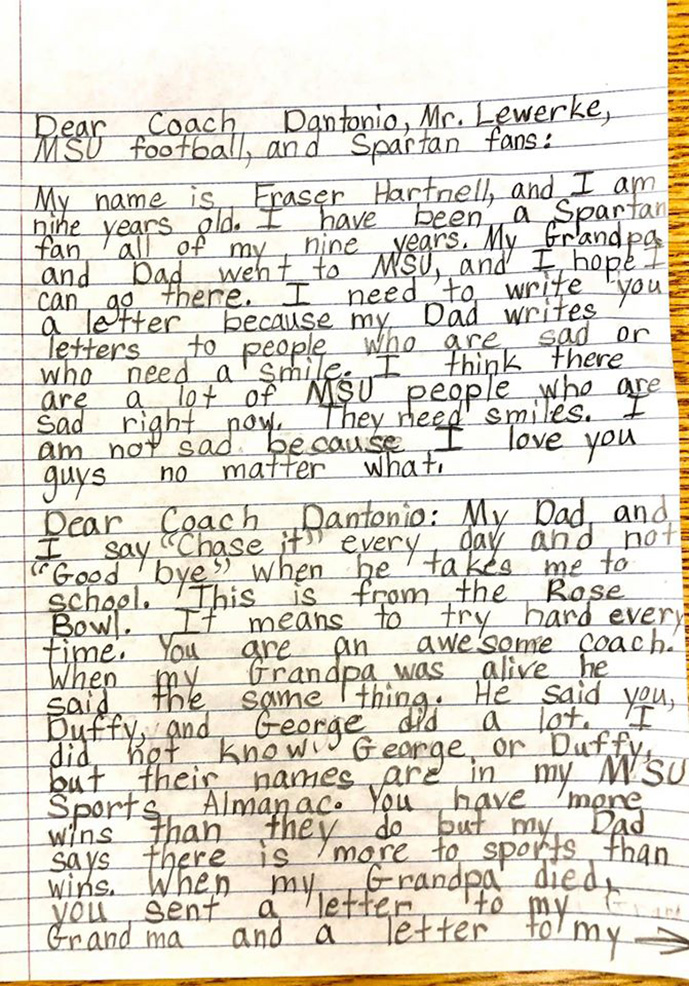 Dear Coach Dantonio, Mr. Lewerke,
MSU football, and Spartan fans:
My name is Fraser Hartnell, and I am
nine years old. I have been a Spartan
fan all of my nine years. My Grandpa
and Dad went to MSU, and I hope I
can go there. I need to write you
a letter because my Dad writes
letters to people who are sad or
who need a smile. I think there
are a lot of MSU people who are
sad right now. They need smiles. I
am not sad because I love you
guys no matter what.
Dear Coach Dantonio: My Dad and
I say "Chase it" every day and not
"Good bye" when he takes me to
school. This is from the Rose
Bowl. It means to try hard every
time. You are an awesome coach.
When my Grandpa was alive he
said the same thing. He said you,
Duffy, and George did a lot. I
did not know George or Duffy,
but their names are in my MSU
Sports Almanac. You have more
wins than they do but my Dad
says there is more to sports than
wins. When my Grandpa died,
you sent a letter to my
Grandma and a letter to my →